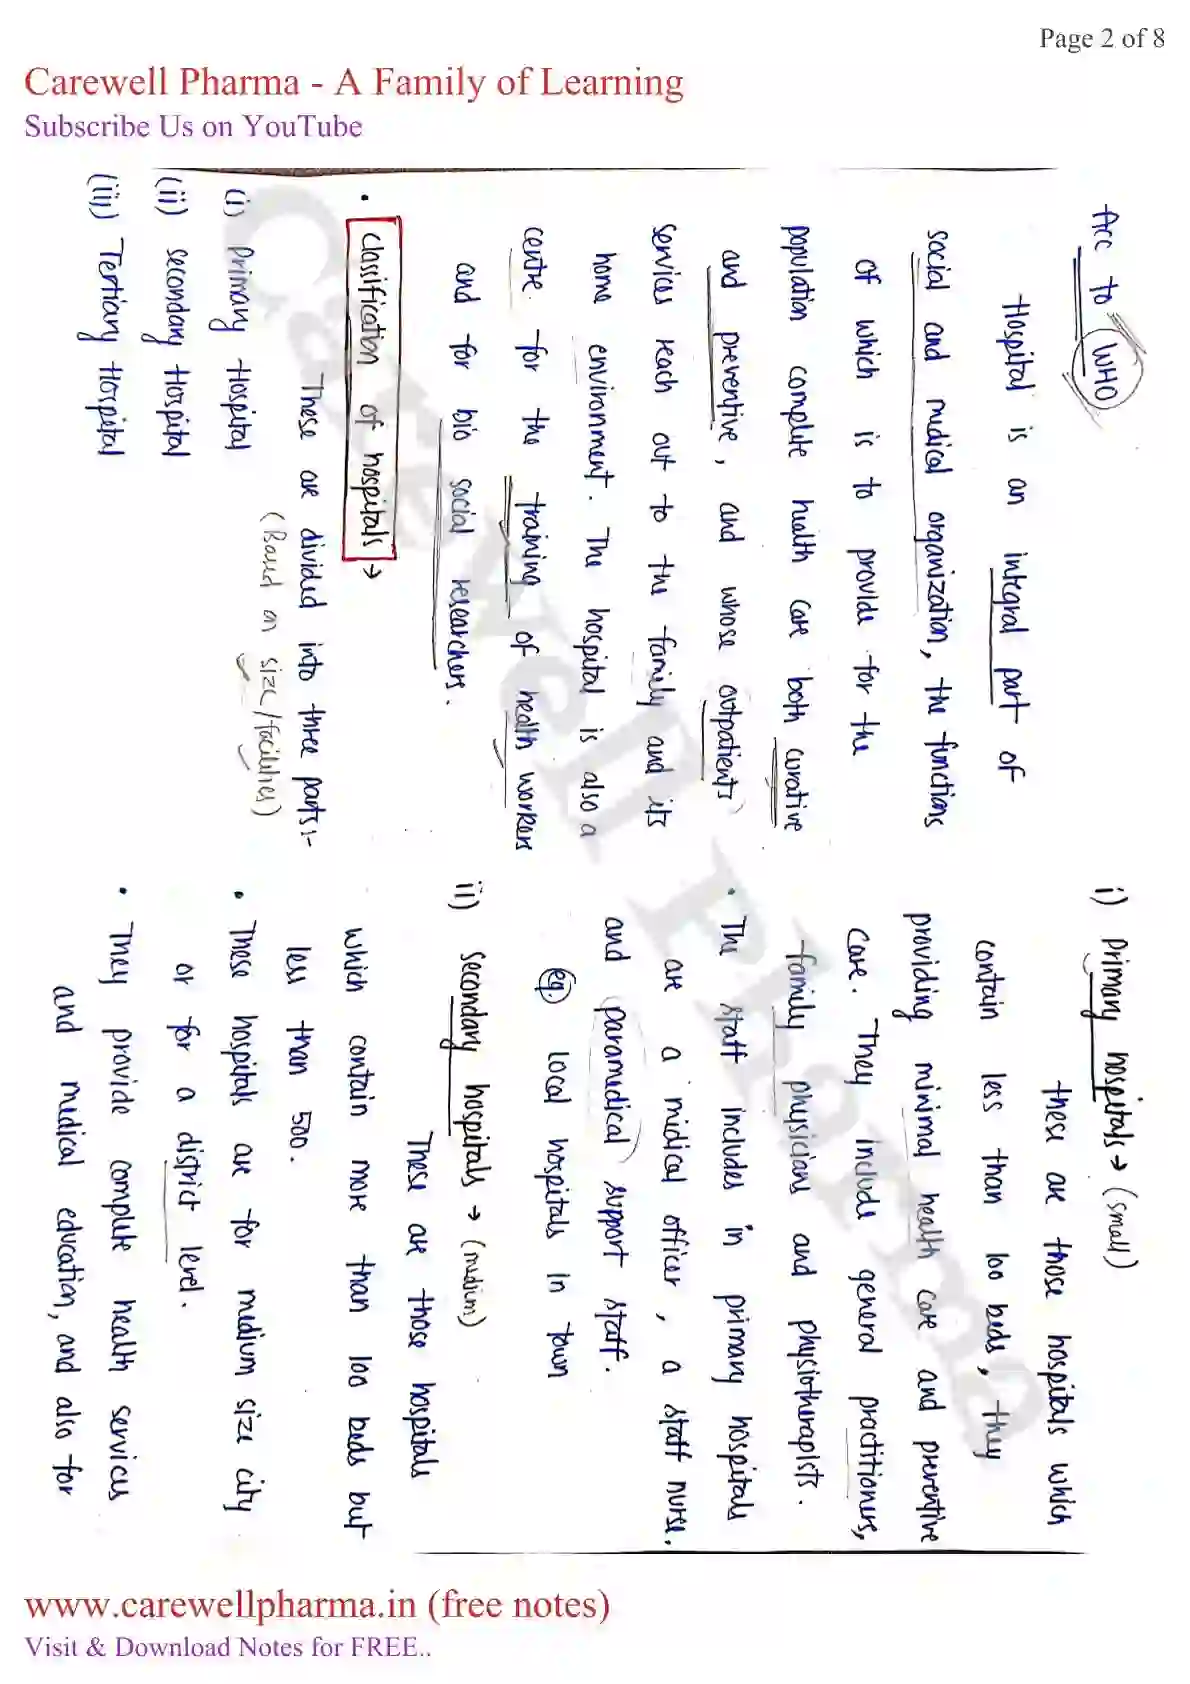 Page 2 of 8
Carewell Pharma - A Family of Learning
Subscribe Us on YouTube
Acc to WHO
Hospital is an integral part of
social and medical organization, the functions
of which is to provide for the
population complete health care both curative
and preventive, and whose outpatients
services reach out to the family and its
home environment. The hospital is also a
centre for the training of health workers
and for bio social researchers.
• Classification of hospitals →
These are divided into three parts:-
(Based on size/facilities)
(i) Primary Hospital
(ii) secondary Hospital
(iii) Tertiary Hospital
i) primary hospitals → (small)
these are those hospitals which
contain less than 100 beds, they
providing minimal health care and preventive
care. They include general practitioners,
family physicians and physiotherapists.
• The staff includes in primary hospitals
are a midical officer, a staff nurse.
and (paramedical) support staff.
eg. local hospitals in town
ii) secondary hospitals → (medium)
These are those hospitals
which contain more than 100 beds but
less than 500.
• These hospitals are for medium size city
or for a district level.
• They provide complete health services
and medical education, and also for
Carewell Pharma
www.carewellpharma.in (free notes)
Visit & Download Notes for FREE..